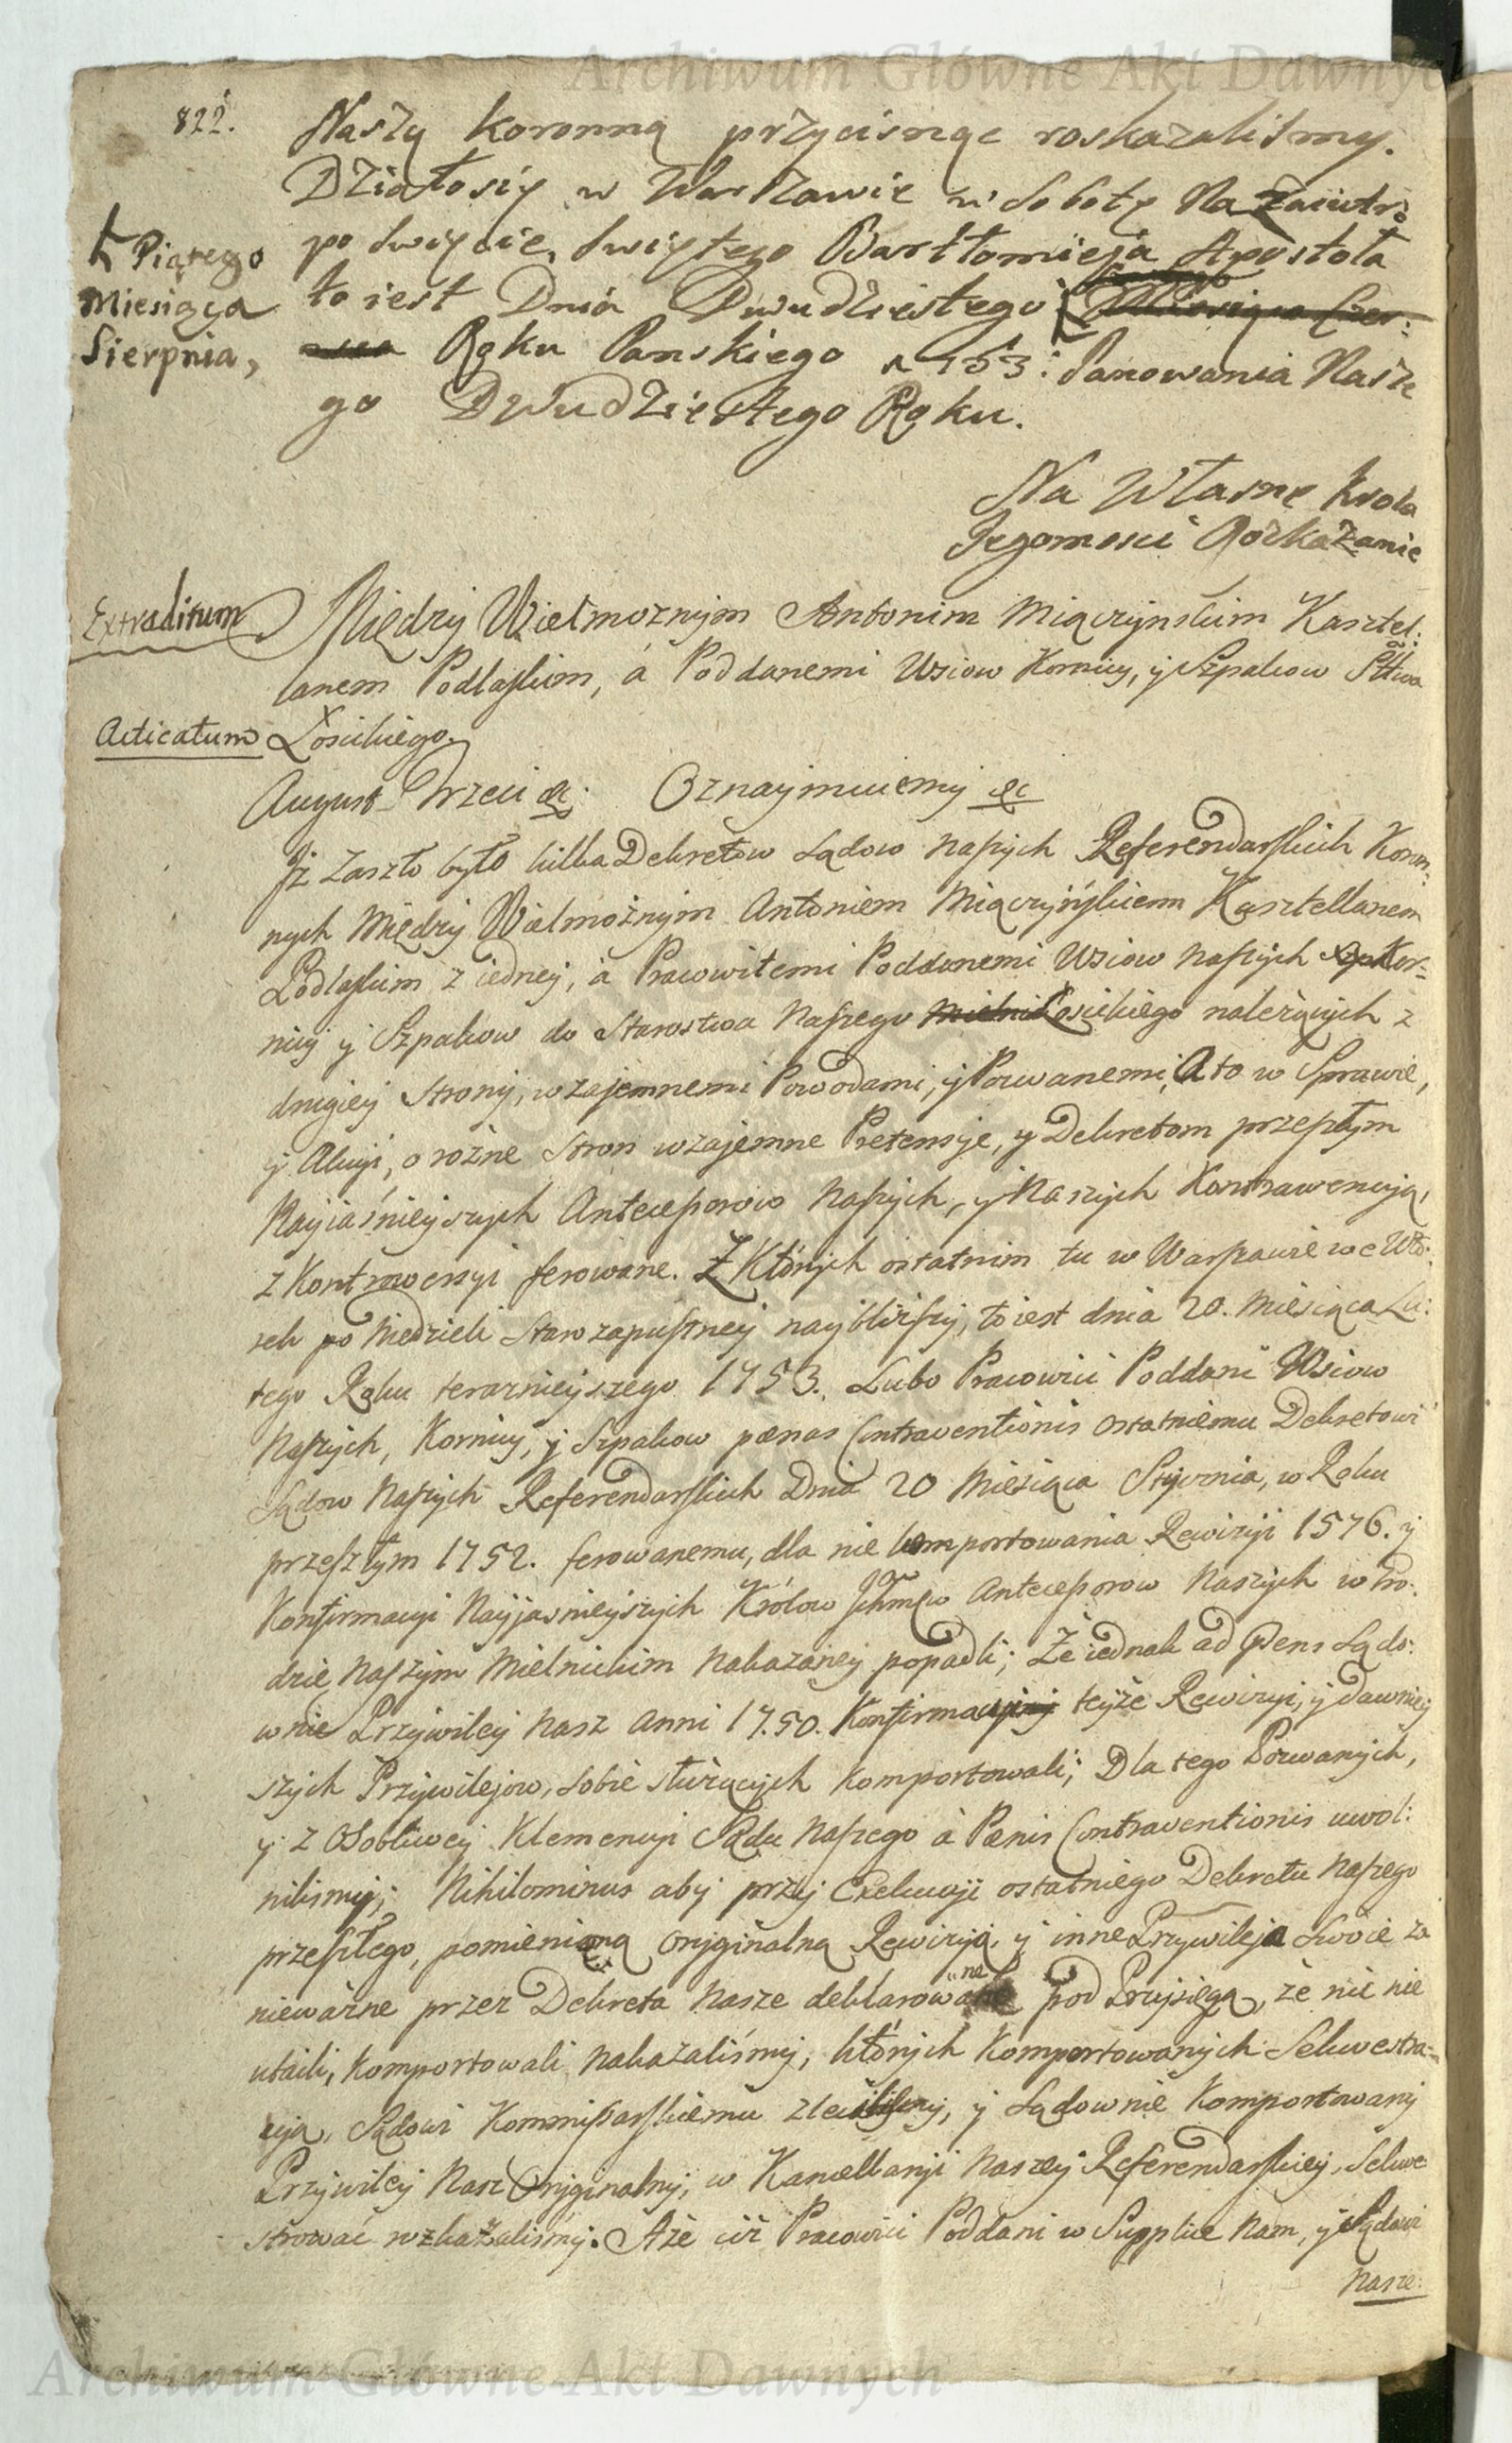 Archiwum Główne Akt Dawnych
822.
Naszą koronną przycisnąc roskazalismy.
Działosię w Warszawie w Sobotę Nazaiutrz
po swięcie Swiętego Bartłomieja Apostoła
to iest Dnia Dwudziestego
Piątego
Miesiąca
Sierpnia,
Roku Panskiego 1753: Panowania Nasze
go Dwudziestego Roku.
Na Własne Krola
Jegomosci Roskazanie
Extraditum
Między Wielmoznym Antonim Miączynskim Kasztel:
lanem Podlaskim, á Poddanemi Wsiow Kornicy, y Szpakow Sttwa
Acticatum
Łosickiego.
August Trzeci &c: Oznaymuiemy &c
Iż Zaszło było kilka Dekretow Sądow Naszych Referendarskich Koron:
nych Między Wielmożnym Antoniem Miączyńskiem Kasztellanem
Podlaskim z iedney, á Pracowitemi Poddanemi Wsiow Naszych Kor=
nicy y Szpakow do Starostwa Naszego Łosickiego należących z
drugiey Strony, wzajemnemi Powodami, y Pozwanemi, A to w Sprawie,
y Akcyi, o rożne Stron wzajemne Pretensye, y Dekretom przeszłym
Nayiaśnieyszych Antecessorow Naszych, y Naszych Kontrawencyą,
z Kontrowersyi ferowane. Z Których ostatnim tu w Warszawie we Wto:
rek po Niedzieli Starozapustney naybliższy, to iest dnia 20. Miesiąca Lu:
tego Roku teraznieyszego 1753. Lubo Pracowici Poddani Wsiow
Naszych, Kornicy, y Szpakow pænas Contraventionis ostatniemu Dekretowi
Sądow Naszych Referendarskich Dnia 20 Miesiąca Stycznia, w Roku
przeszłym 1752. ferowanemu, dla nie komportowania Rewizyi 1576. y
Konfirmacyi Nayjasnieyszych Królow Antecessorow Naszych w Gro:
dzie Naszym Mielnickim Nakazaney popadli; Że iednak ad præsens Sądo:
wnie Przywiley Nasz Anni 1750. Konfirmacyiny teyże Rewizyi, y dawniey
szych Przywilejow, sobie służących komportowali; Dla tego Pozwanych,
y z Osobliwey Klemencyi Sądu Naszego à Pænis Contraventionis uwol:
nilismy; Nihilominus aby przy Exekucyi ostatniego Dekretu Naszego
przeszłego, pomienioną oryginalną Rewizyą, y inne Przywileja Swoie za
nieważne przez Dekreta Nasze deklarowane pod Przysięgą, że nic nie
utaili, komportowali nakazaliśmy, których komportowanych Sekwestra=
cyą, Sądowi Kommissarskiemu zleciliśmy, y Sądownie komportowany
Przywiley Nasz Oryginalny, w Kancellaryi Naszey Referendarskiey, Sekwe
strować rozkazalismy. Aże ciż Pracowici Poddani w Supplice Nam, y Sądowi
Nasze:
Archiwum Główne Akt Dawnych